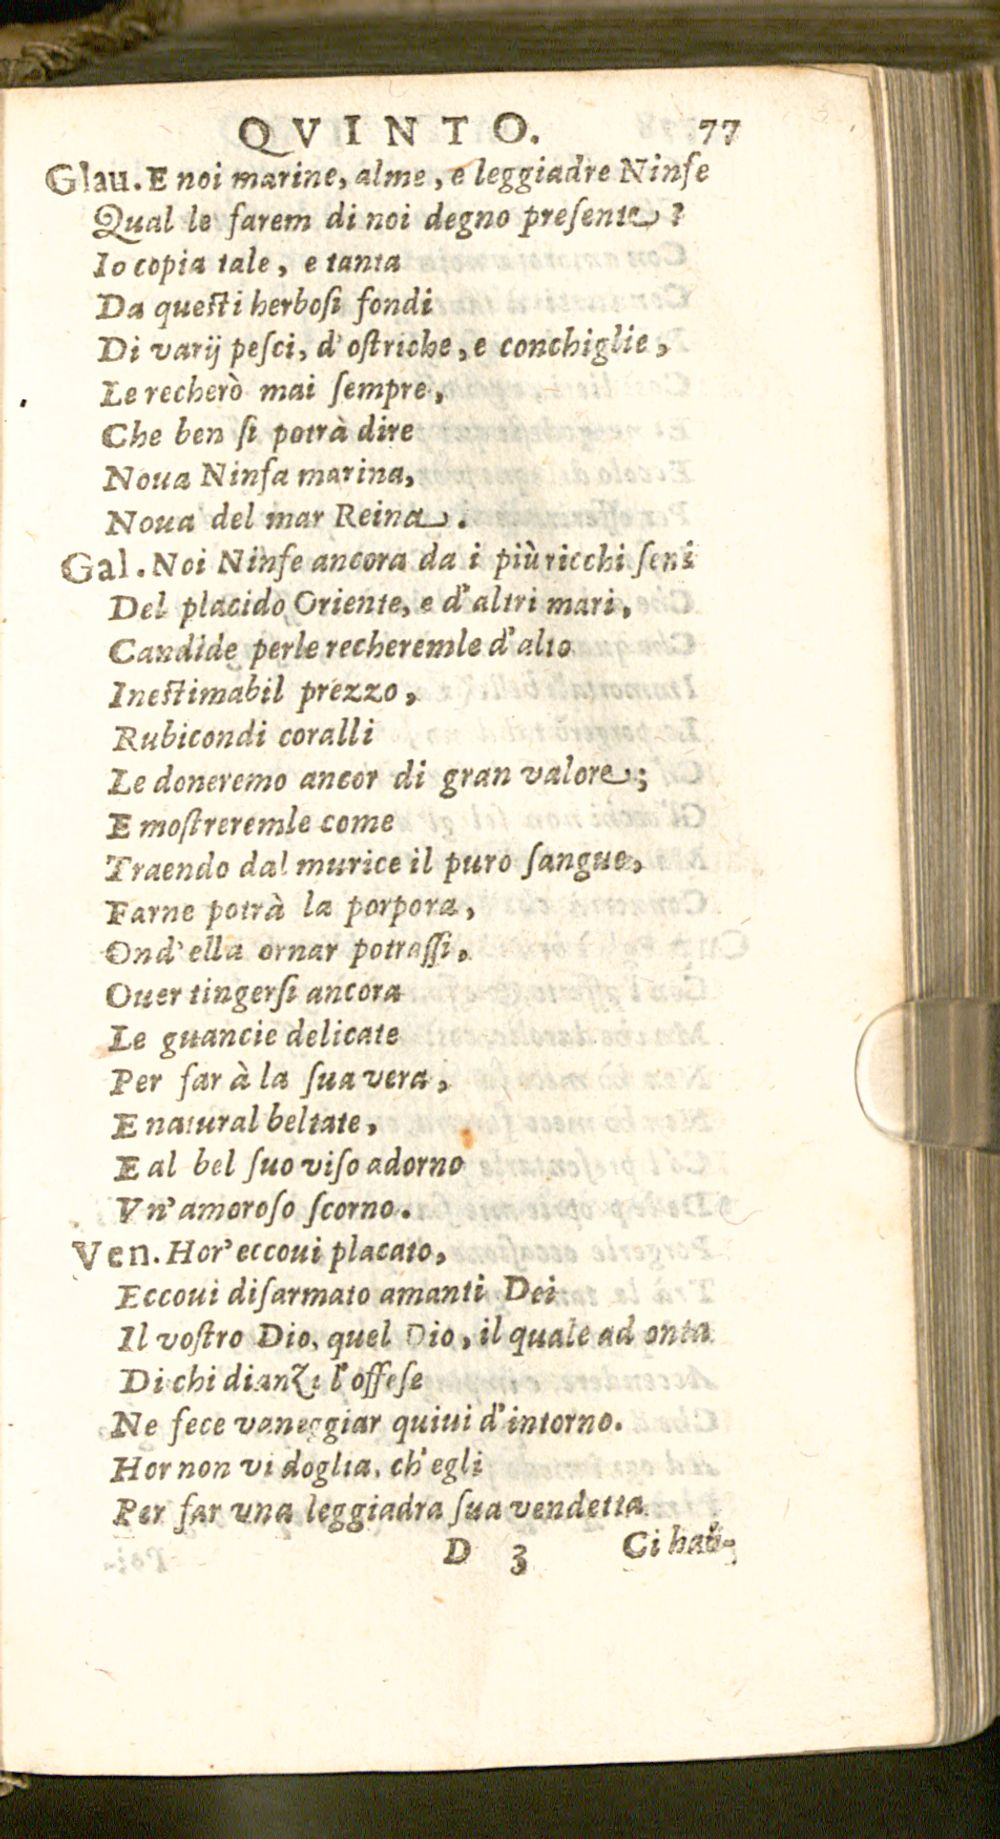 QVINTO. 77
Glau. E noi marine, alme, e leggiadre Ninfe
Qual le farem di noi degno preſente?
Io copia tale, e tanta
Da queſti herboſi fondi
Di varij peſci, d'oſtriche, e conchiglie,
Le recherò mai ſempre,
Che ben ſi potrà dire
Noua Ninfa marina,
Noua del mar Reina.
Gal. Noi Ninfe ancora da i più ricchi ſeni
Del placido Oriente, e d'altri mari,
Candide perle recheremle d'alto
Ineſtimabil prezzo,
Rubicondi coralli
Le doneremo ancor di gran valore;
E moſtreremle come
Traendo dal murice il puro ſangue,
Farne potrà la porpora,
Ond'ella ornar potraſſi,
Ouer tingerſi ancora
Le guancie delicate
Per far à la ſua vera,
E natural beltate,
E al bel ſuo viſo adorno
Vn'amoroſo ſcorno.
Ven. Hor'eccoui placato,
Eccoui diſarmato amanti Dei
Il voſtro Dio, quel Dio, il quale ad onta
Di chi dianzi l'offeſe
Ne fece vaneggiar quiui d'intorno.
Hor non vi doglia, ch'egli
Per far una leggiadra ſua vendetta
D 3 Ci hab-